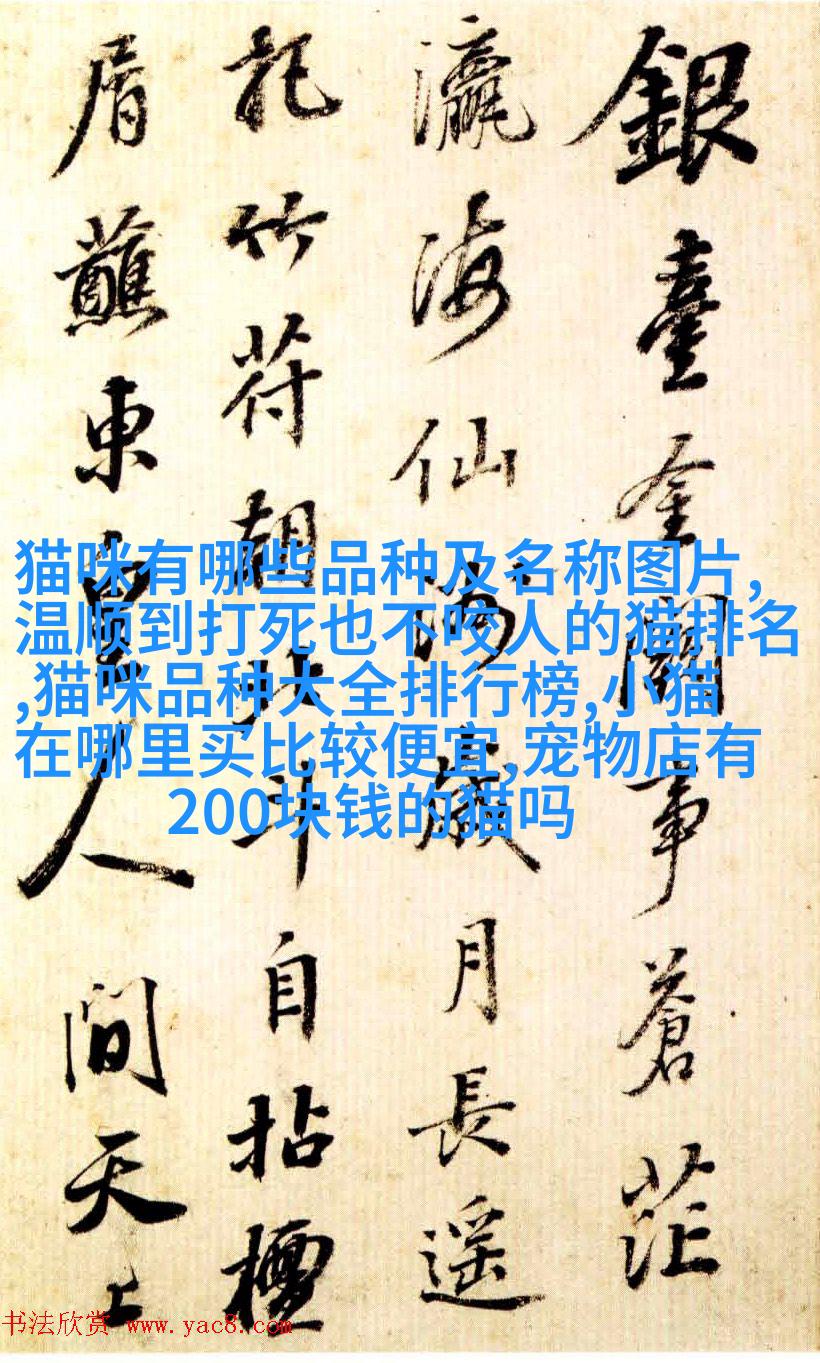 銀臺金闕事蒼茫
瀛海仙歲月長遥
記竹符朝北斗自拈檀
屑蘸東皇人間天上
猫咪有哪些品种及名称图片,
温顺到打死也不咬人的猫排名
,猫咪品种大全排行榜,小猫
在哪里买比较便宜,宠物店有
200块钱的猫吗
书法欣赏 www.yac8.com